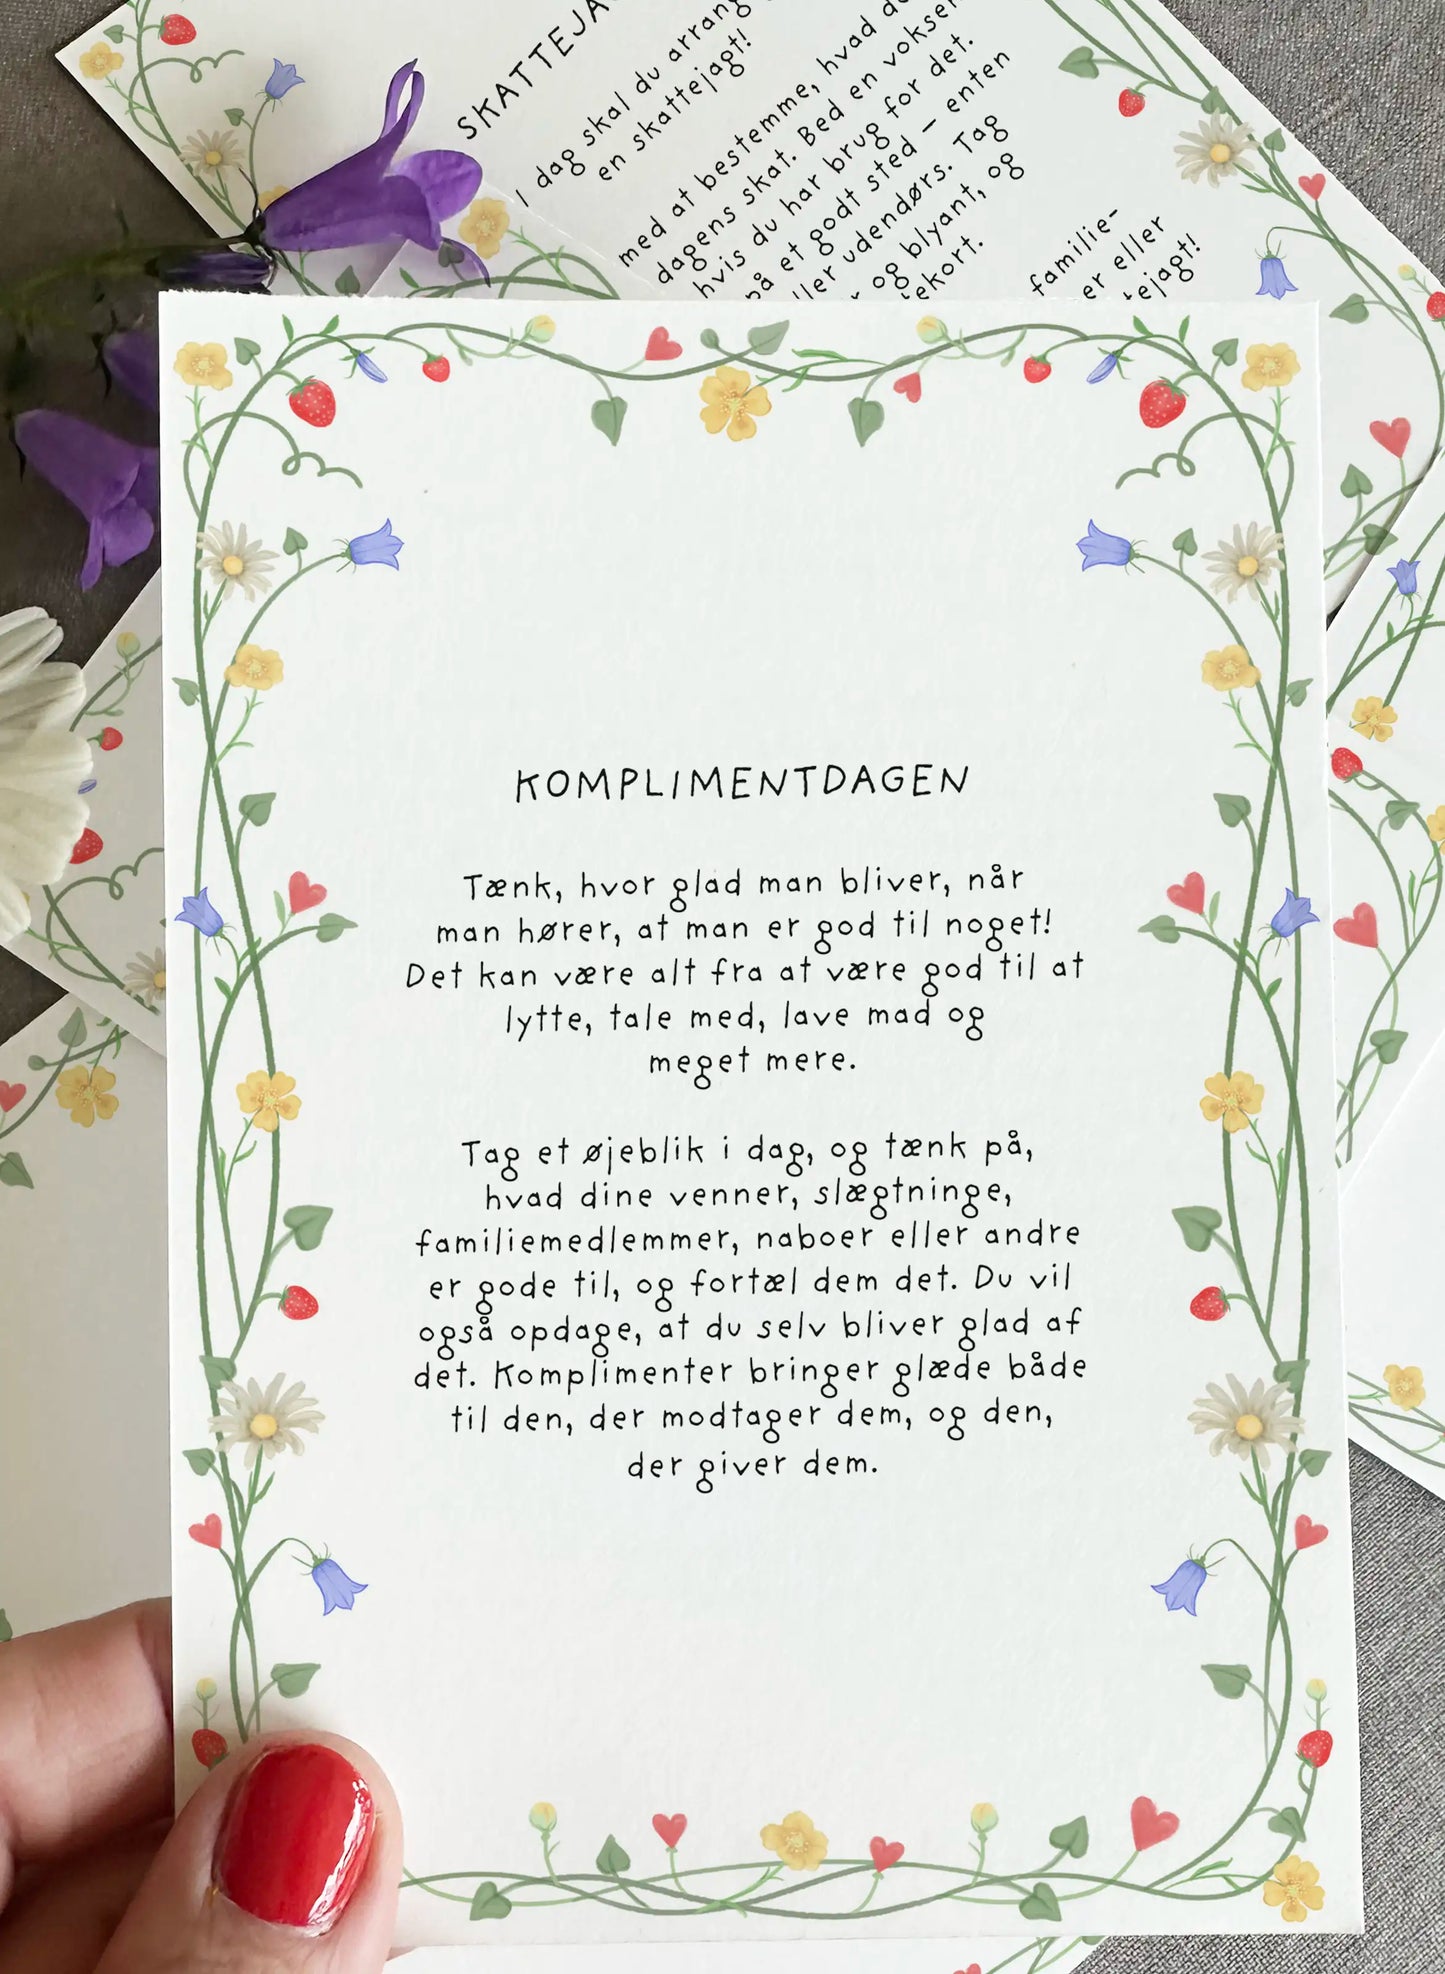 I dag skal du arrang
en skattejagt!
med at bestemme, hvad d
dagens skat. Bed en voksen
hvis du har brug for det.
på et godt sted – enten
ller udendørs. Tag
og blyant, og
ekort.
familie-
er eller
tejagt!
KOMPLIMENTDAGEN
Tænk, hvor glad man bliver, når
man hører, at man er god til noget!
Det kan være alt fra at være god til at
lytte, tale med, lave mad og
meget mere.
Tag et øjeblik i dag, og tænk på,
hvad dine venner, slægtninge,
familiemedlemmer, naboer eller andre
er gode til, og fortæl dem det. Du vil
også opdage, at du selv bliver glad af
det. Komplimenter bringer glæde både
til den, der modtager dem, og den,
der giver dem.